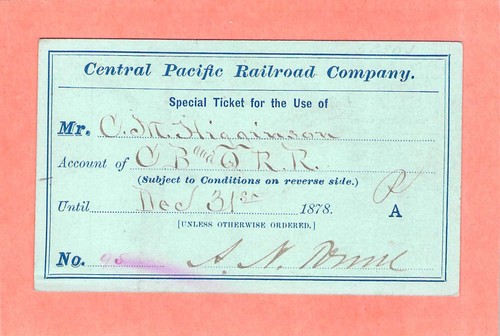 Central Pacific Railroad Company.
Special Ticket for the Use of
Mr. C. M. Higginson
Account of C B and Q R. R.
(Subject to Conditions on reverse side.)
Until Dec 31st 1878. A
[UNLESS OTHERWISE ORDERED.]
No. A. N. Towne